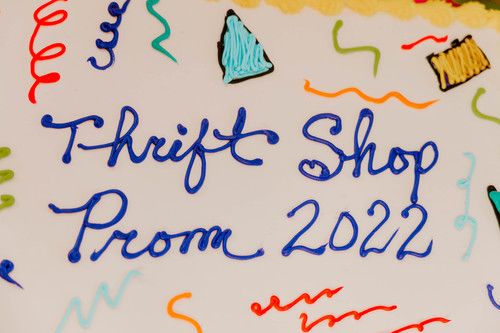 Thrift Shop
Prom 2022